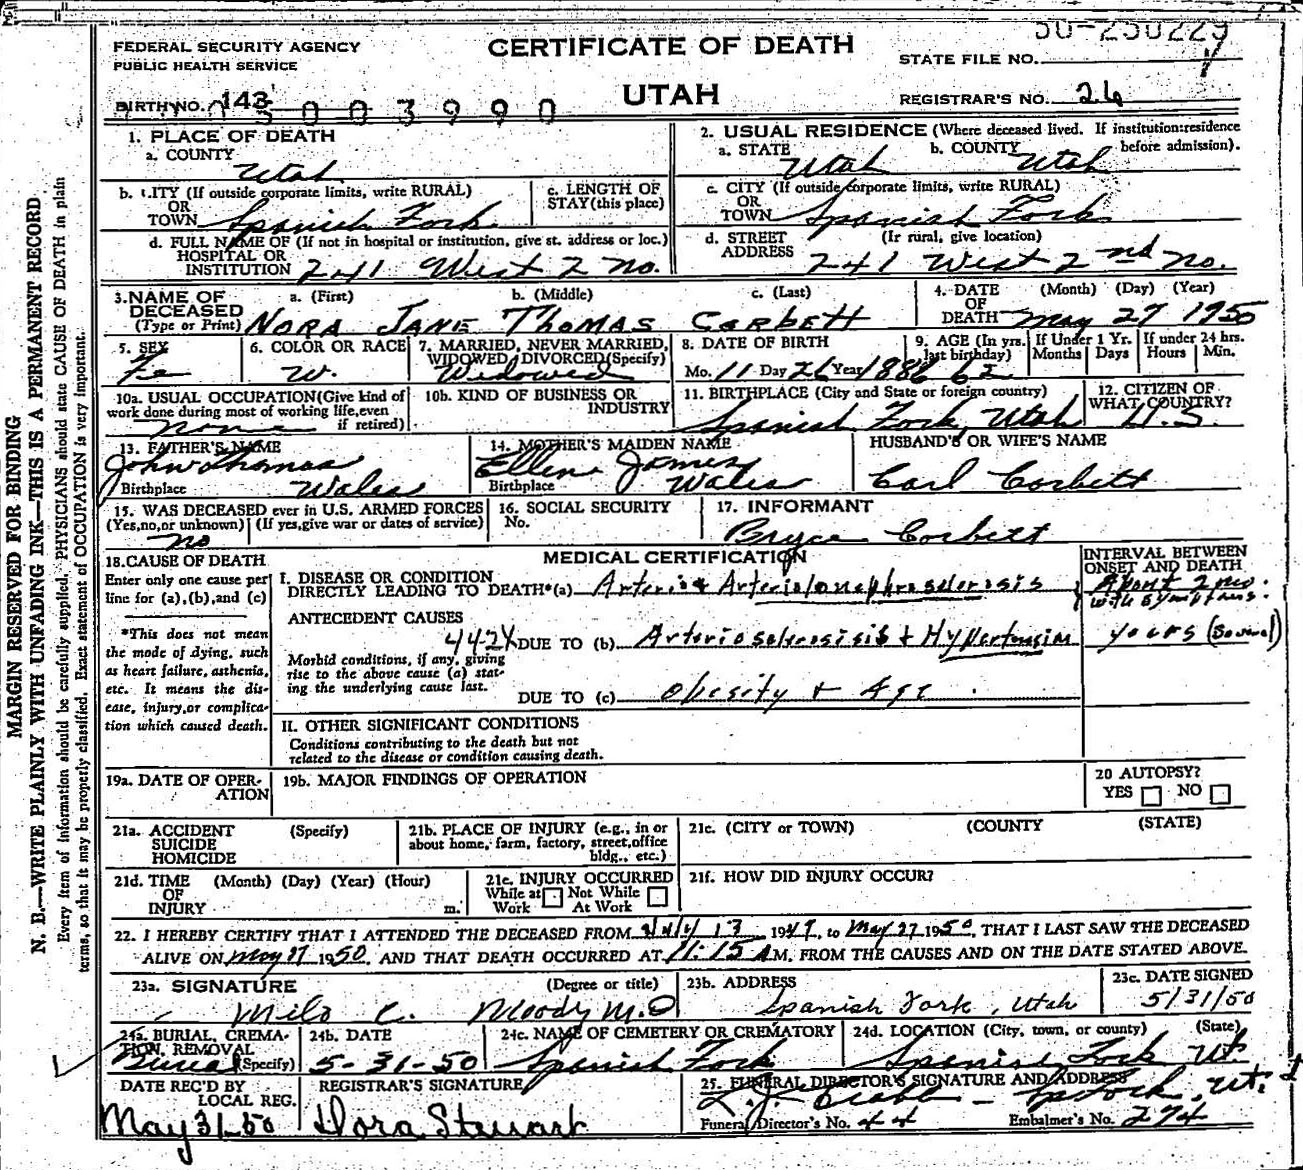 50-250229
FEDERAL SECURITY AGENCY
PUBLIC HEALTH SERVICE
CERTIFICATE OF DEATH
STATE FILE NO.
BIRTH NO. 143
003990
UTAH
REGISTRAR'S NO. 26
1. PLACE OF DEATH
a. COUNTY Utah
2. USUAL RESIDENCE (Where deceased lived. If institution: residence before admission).
a. STATE Utah b. COUNTY Utah
b. CITY (If outside corporate limits, write RURAL)
OR
TOWN Spanish Fork
c. LENGTH OF
STAY (this place)
c. CITY (If outside corporate limits, write RURAL)
OR
TOWN Spanish Fork
d. FULL NAME OF (If not in hospital or institution, give st. address or loc.)
HOSPITAL OR
INSTITUTION 241 West 2 no.
d. STREET (If rural, give location)
ADDRESS 241 West 2nd no.
3. NAME OF DECEASED (Type or Print)
a. (First) b. (Middle) c. (Last)
NORA JANE THOMAS CORBETT
4. DATE OF DEATH (Month) (Day) (Year)
May 27 1950
5. SEX
Fe
6. COLOR OR RACE
W.
7. MARRIED, NEVER MARRIED, WIDOWED, DIVORCED (Specify)
Widowed
8. DATE OF BIRTH
Mo. 11 Day 26 Year 1886
9. AGE (In yrs. last birthday)
If Under 1 Yr. Months Days
If under 24 hrs. Hours Min.
10a. USUAL OCCUPATION (Give kind of work done during most of working life, even if retired)
None
10b. KIND OF BUSINESS OR INDUSTRY
11. BIRTHPLACE (City and State or foreign country)
Spanish Fork, Utah
12. CITIZEN OF WHAT COUNTRY?
U.S.
13. FATHER'S NAME
John Thomas
Birthplace Wales
14. MOTHER'S MAIDEN NAME
Ellen James
Birthplace Wales
HUSBAND'S OR WIFE'S NAME
Carl Corbett
15. WAS DECEASED ever in U.S. ARMED FORCES
(Yes, no, or unknown) (If yes, give war or dates of service)
no
16. SOCIAL SECURITY
No.
17. INFORMANT
Bryce Corbett
18. CAUSE OF DEATH
Enter only one cause per line for (a), (b), and (c)
*This does not mean the mode of dying, such as heart failure, asthenia, etc. It means the disease, injury, or complication which caused death.
MEDICAL CERTIFICATION
INTERVAL BETWEEN ONSET AND DEATH
I. DISEASE OR CONDITION
DIRECTLY LEADING TO DEATH*(a) Arterio & Arteriolonephrosclerosis
About 2 mo. with symptoms.
ANTECEDENT CAUSES
442X DUE TO (b) Arteriosclerosisis + Hypertension
years (several)
Morbid conditions, if any, giving rise to the above cause (a) stating the underlying cause last.
DUE TO (c) Obesity + Age
II. OTHER SIGNIFICANT CONDITIONS
Conditions contributing to the death but not related to the disease or condition causing death.
19a. DATE OF OPERATION
19b. MAJOR FINDINGS OF OPERATION
20 AUTOPSY?
YES NO
21a. ACCIDENT (Specify)
SUICIDE
HOMICIDE
21b. PLACE OF INJURY (e.g., in or about home, farm, factory, street, office bldg., etc.)
21c. (CITY or TOWN) (COUNTY) (STATE)
21d. TIME OF INJURY (Month) (Day) (Year) (Hour) m.
21e. INJURY OCCURRED
While at Work Not While At Work
21f. HOW DID INJURY OCCUR?
22. I HEREBY CERTIFY THAT I ATTENDED THE DECEASED FROM July 13 1949, to May 27 1950, THAT I LAST SAW THE DECEASED
ALIVE ON May 27 1950, AND THAT DEATH OCCURRED AT 11:15 AM. FROM THE CAUSES AND ON THE DATE STATED ABOVE.
23a. SIGNATURE (Degree or title)
Milo C. Moody M.D
23b. ADDRESS
Spanish Fork, Utah
23c. DATE SIGNED
5/31/50
24a. BURIAL, CREMATION, REMOVAL (Specify)
Burial
24b. DATE
5-31-50
24c. NAME OF CEMETERY OR CREMATORY
Spanish Fork
24d. LOCATION (City, town, or county) (State)
Spanish Fork Ut
DATE REC'D BY LOCAL REG.
May 31-50
REGISTRAR'S SIGNATURE
Dora Stewart
25. FUNERAL DIRECTOR'S SIGNATURE AND ADDRESS
Funeral Director's No. 44 Embalmer's No. 274
MARGIN RESERVED FOR BINDING
N. B.—WRITE PLAINLY WITH UNFADING INK—THIS IS A PERMANENT RECORD
Every item of information should be carefully supplied. PHYSICIANS should state CAUSE OF DEATH in plain
terms, so that it may be properly classified. Exact statement of OCCUPATION is very important.